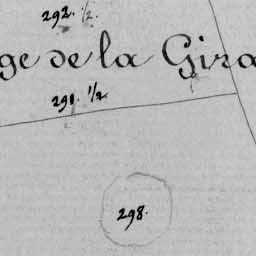 292. ½.
ge de la Gira
291. ½
298.